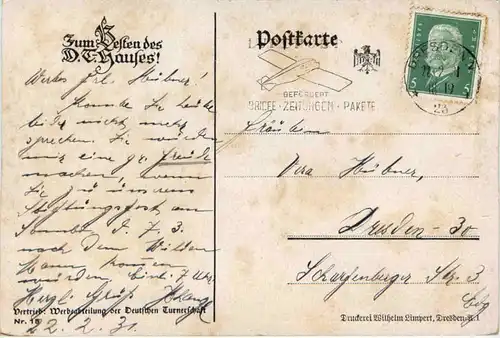 Zum Besten des
D.T.Hauses!
Wertes Frl. Hübner!
Konnte Sie heute
leider nicht mehr
sprechen. Sie würden
mir eine gr. Freude
machen wenn
Sie zu unserem
Stiftungsfest am
d. 7. 3.
nach dem Wilden
Mann kommen
würden. Einl. 7 Uhr.
Herzl. Gruß
22.2.31.
Vertrieb: Werbeabteilung der Deutschen Turnerschaft
Nr. 16
Postkarte
BEFÖRDERT
BRIEFE · ZEITUNGEN · PAKETE
DRESDEN
5 5
Fräulein
Vera Hübner,
Dresden-30
Scharfenberger Str. 3
Druckerei Wilhelm Limpert, Dresden-A.1